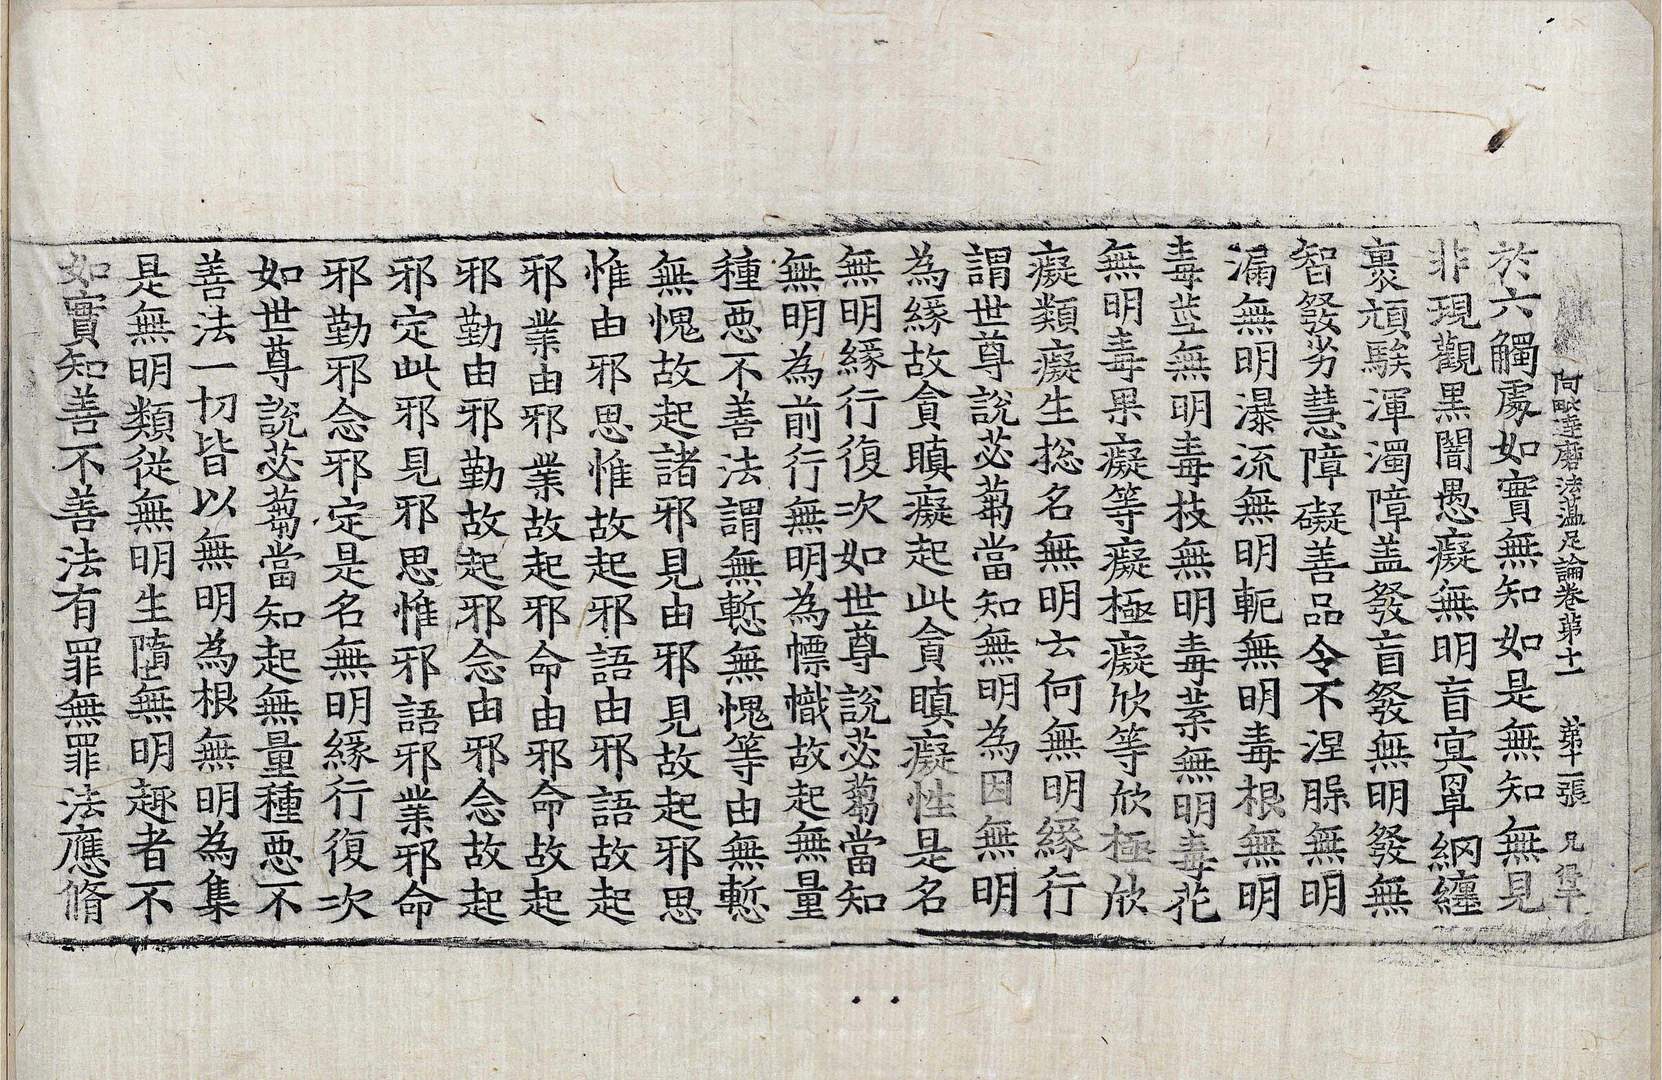 阿毗達磨法蘊足論卷第十一 第十一張 兄
於六觸處如實無知如是無知無見
非現觀黑闇愚癡無明盲冥罩網纏
裹頑騃渾濁障盖發盲發無明發無
智發劣慧障礙善品令不涅槃無明
漏無明瀑流無明軛無明毒根無明
毒莖無明毒枝無明毒葉無明毒花
無明毒果癡等癡極癡欣等欣極欣
癡類癡生捴名無明云何無明緣行
謂世尊說苾蒭當知無明為因無明
為緣故貪瞋癡起此貪瞋癡性是名
無明緣行復次如世尊說苾蒭當知
無明為前行無明為幖幟故起無量
種惡不善法謂無慙無愧等由無慙
無愧故起諸邪見由邪見故起邪思
惟由邪思惟故起邪語由邪語故起
邪業由邪業故起邪命由邪命故起
邪勤由邪勤故起邪念由邪念故起
邪定此邪見邪思惟邪語邪業邪命
邪勤邪念邪定是名無明緣行復次
如世尊說苾蒭當知起無量種惡不
善法一切皆以無明為根無明為集
是無明類從無明生墮無明趣者不
如實知善不善法有罪無罪法應脩